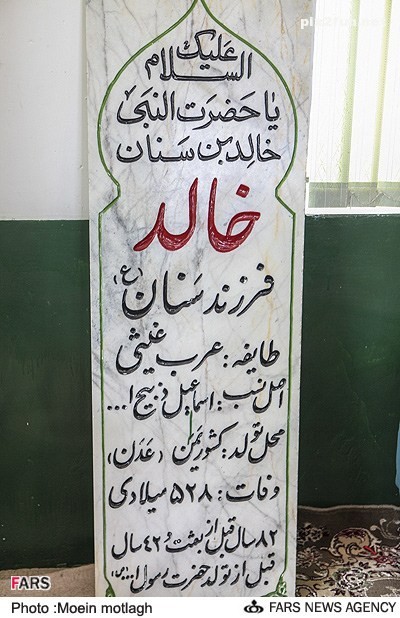 السلام علیک
یا حضرت النبی
خالد بن سنان
خالد
فرزند سنان (ع)
طایفه: عرب غیثی
اصل نسب: اسماعیل ذبیح ا...
محل تولد: کشور یمن (عدن)
وفات: ۵۲۸ میلادی
۸۲ سال قبل از بعثت و ۴۲ سال
قبل از تولد حضرت رسول ا...
FARS
Photo :Moein motlagh
FARS NEWS AGENCY